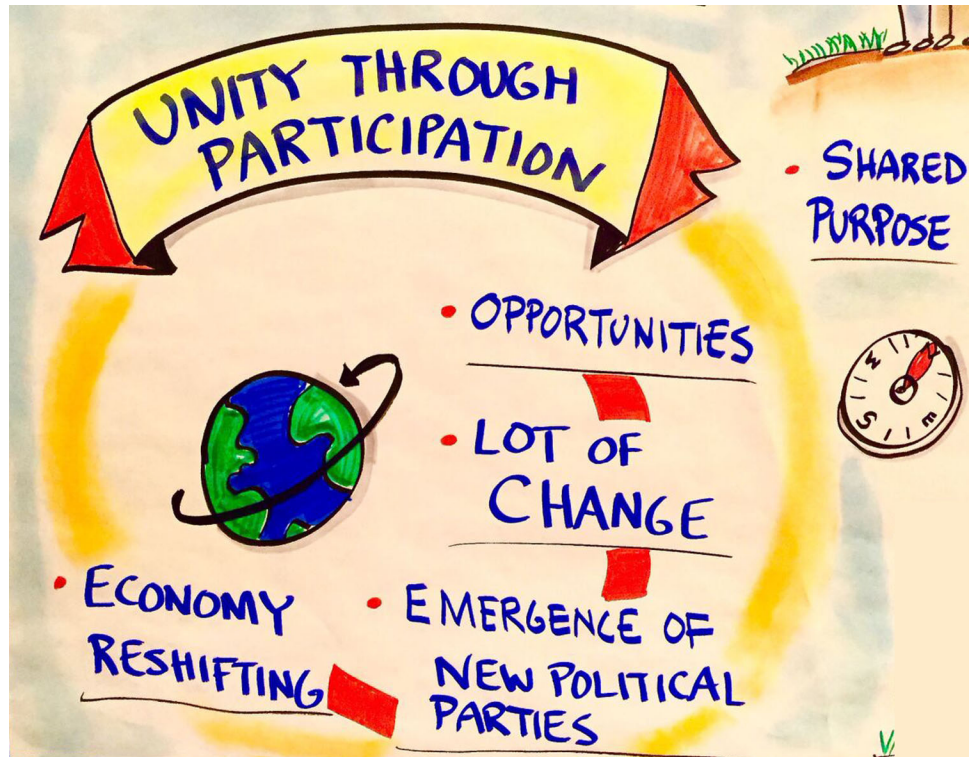 UNITY THROUGH
PARTICIPATION
• SHARED
PURPOSE
• OPPORTUNITIES
• LOT OF
CHANGE
• ECONOMY
RESHIFTING
• EMERGENCE OF
NEW POLITICAL
PARTIES
W
S
E